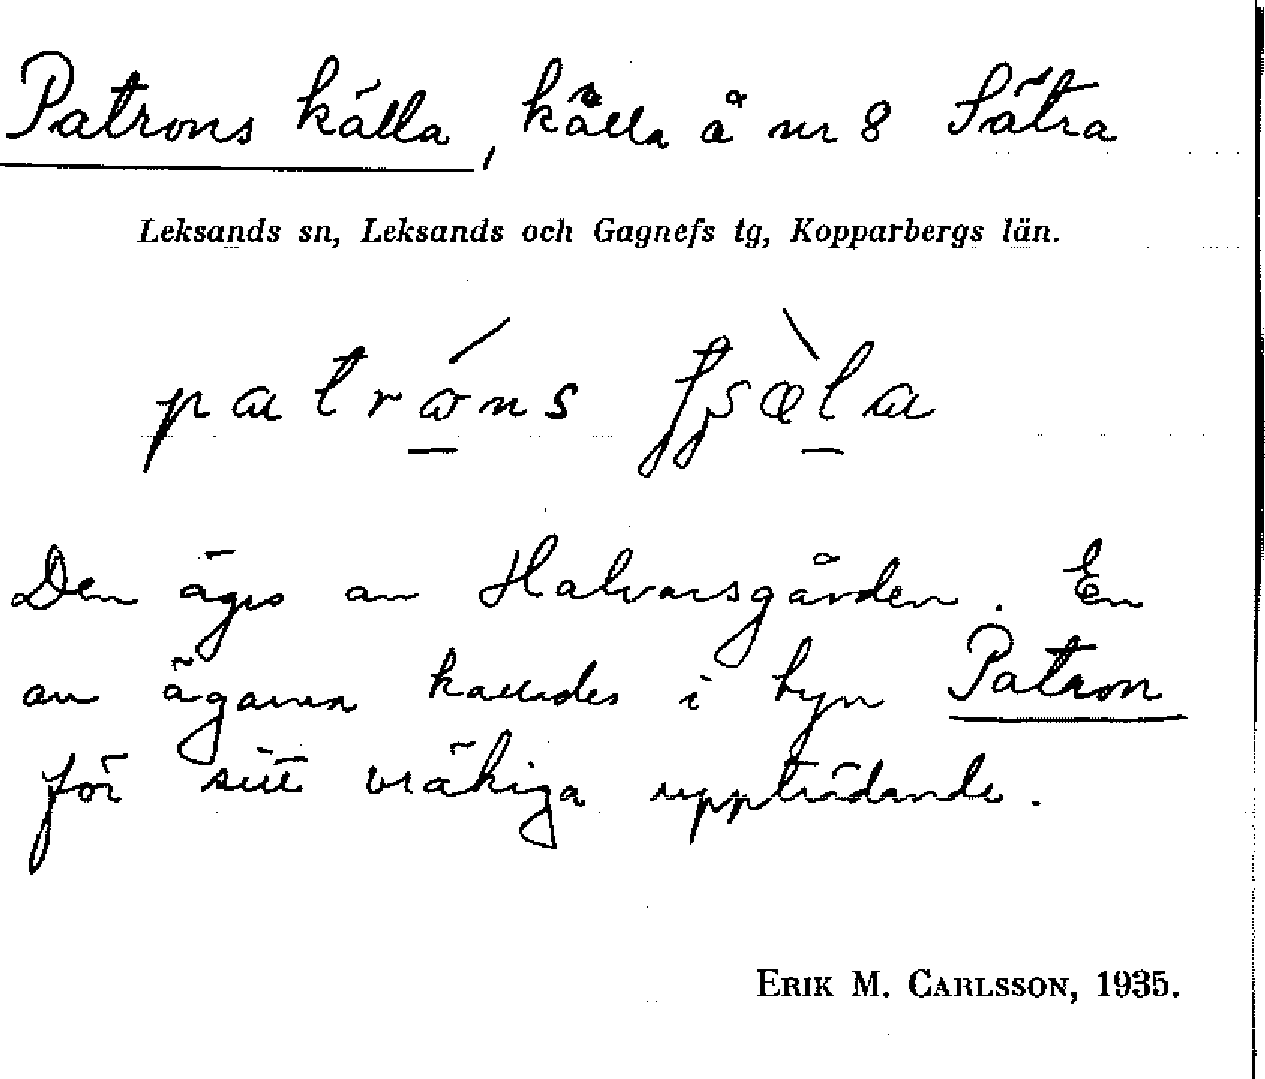 Patrons källa, källa å nr 8 Sätra
Leksands sn, Leksands och Gagnefs tg, Kopparbergs län.
Den äges av Halvarsgården. En
av ägarna kallades i byn Patron
för sitt vräkiga uppträdande.
ERIK M. CARLSSON, 1935.